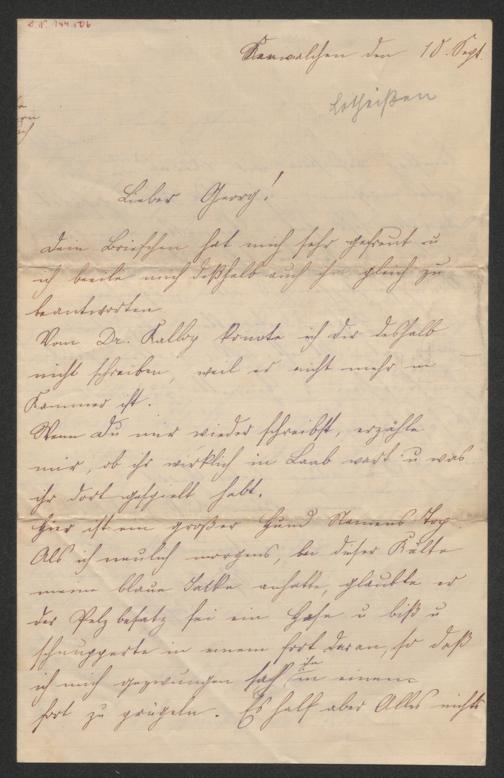 I.N. 144.506
Kammer den 10. Sept.
Lotheißen
Lieber Georg!
Dein Briefchen hat mich sehr gefreut u
ich beeile mich deßhalb auch ihn gleich zu
beantworten
Vom Dr. Kalloy konnte ich dir deßhalb
nicht schreiben, weil er nicht mehr in
Kammer ist.
Wenn Du mir wieder schreibst, erzähle
mir, ob ihr wirklich in Laab wart u was
ihr dort gespielt habt.
Hier ist ein großer Hund Namens Toy.
Als ich neulich morgens, bei dieser Kälte
meine blaue Jacke anhatte, glaubte er
der Pelzbesatz sei ein Hase u biß u
schnupperte in einem fort daran, so daß
ich mich gezwungen sah ihn in einem
fort zu prügeln. Es half aber Alles nichts